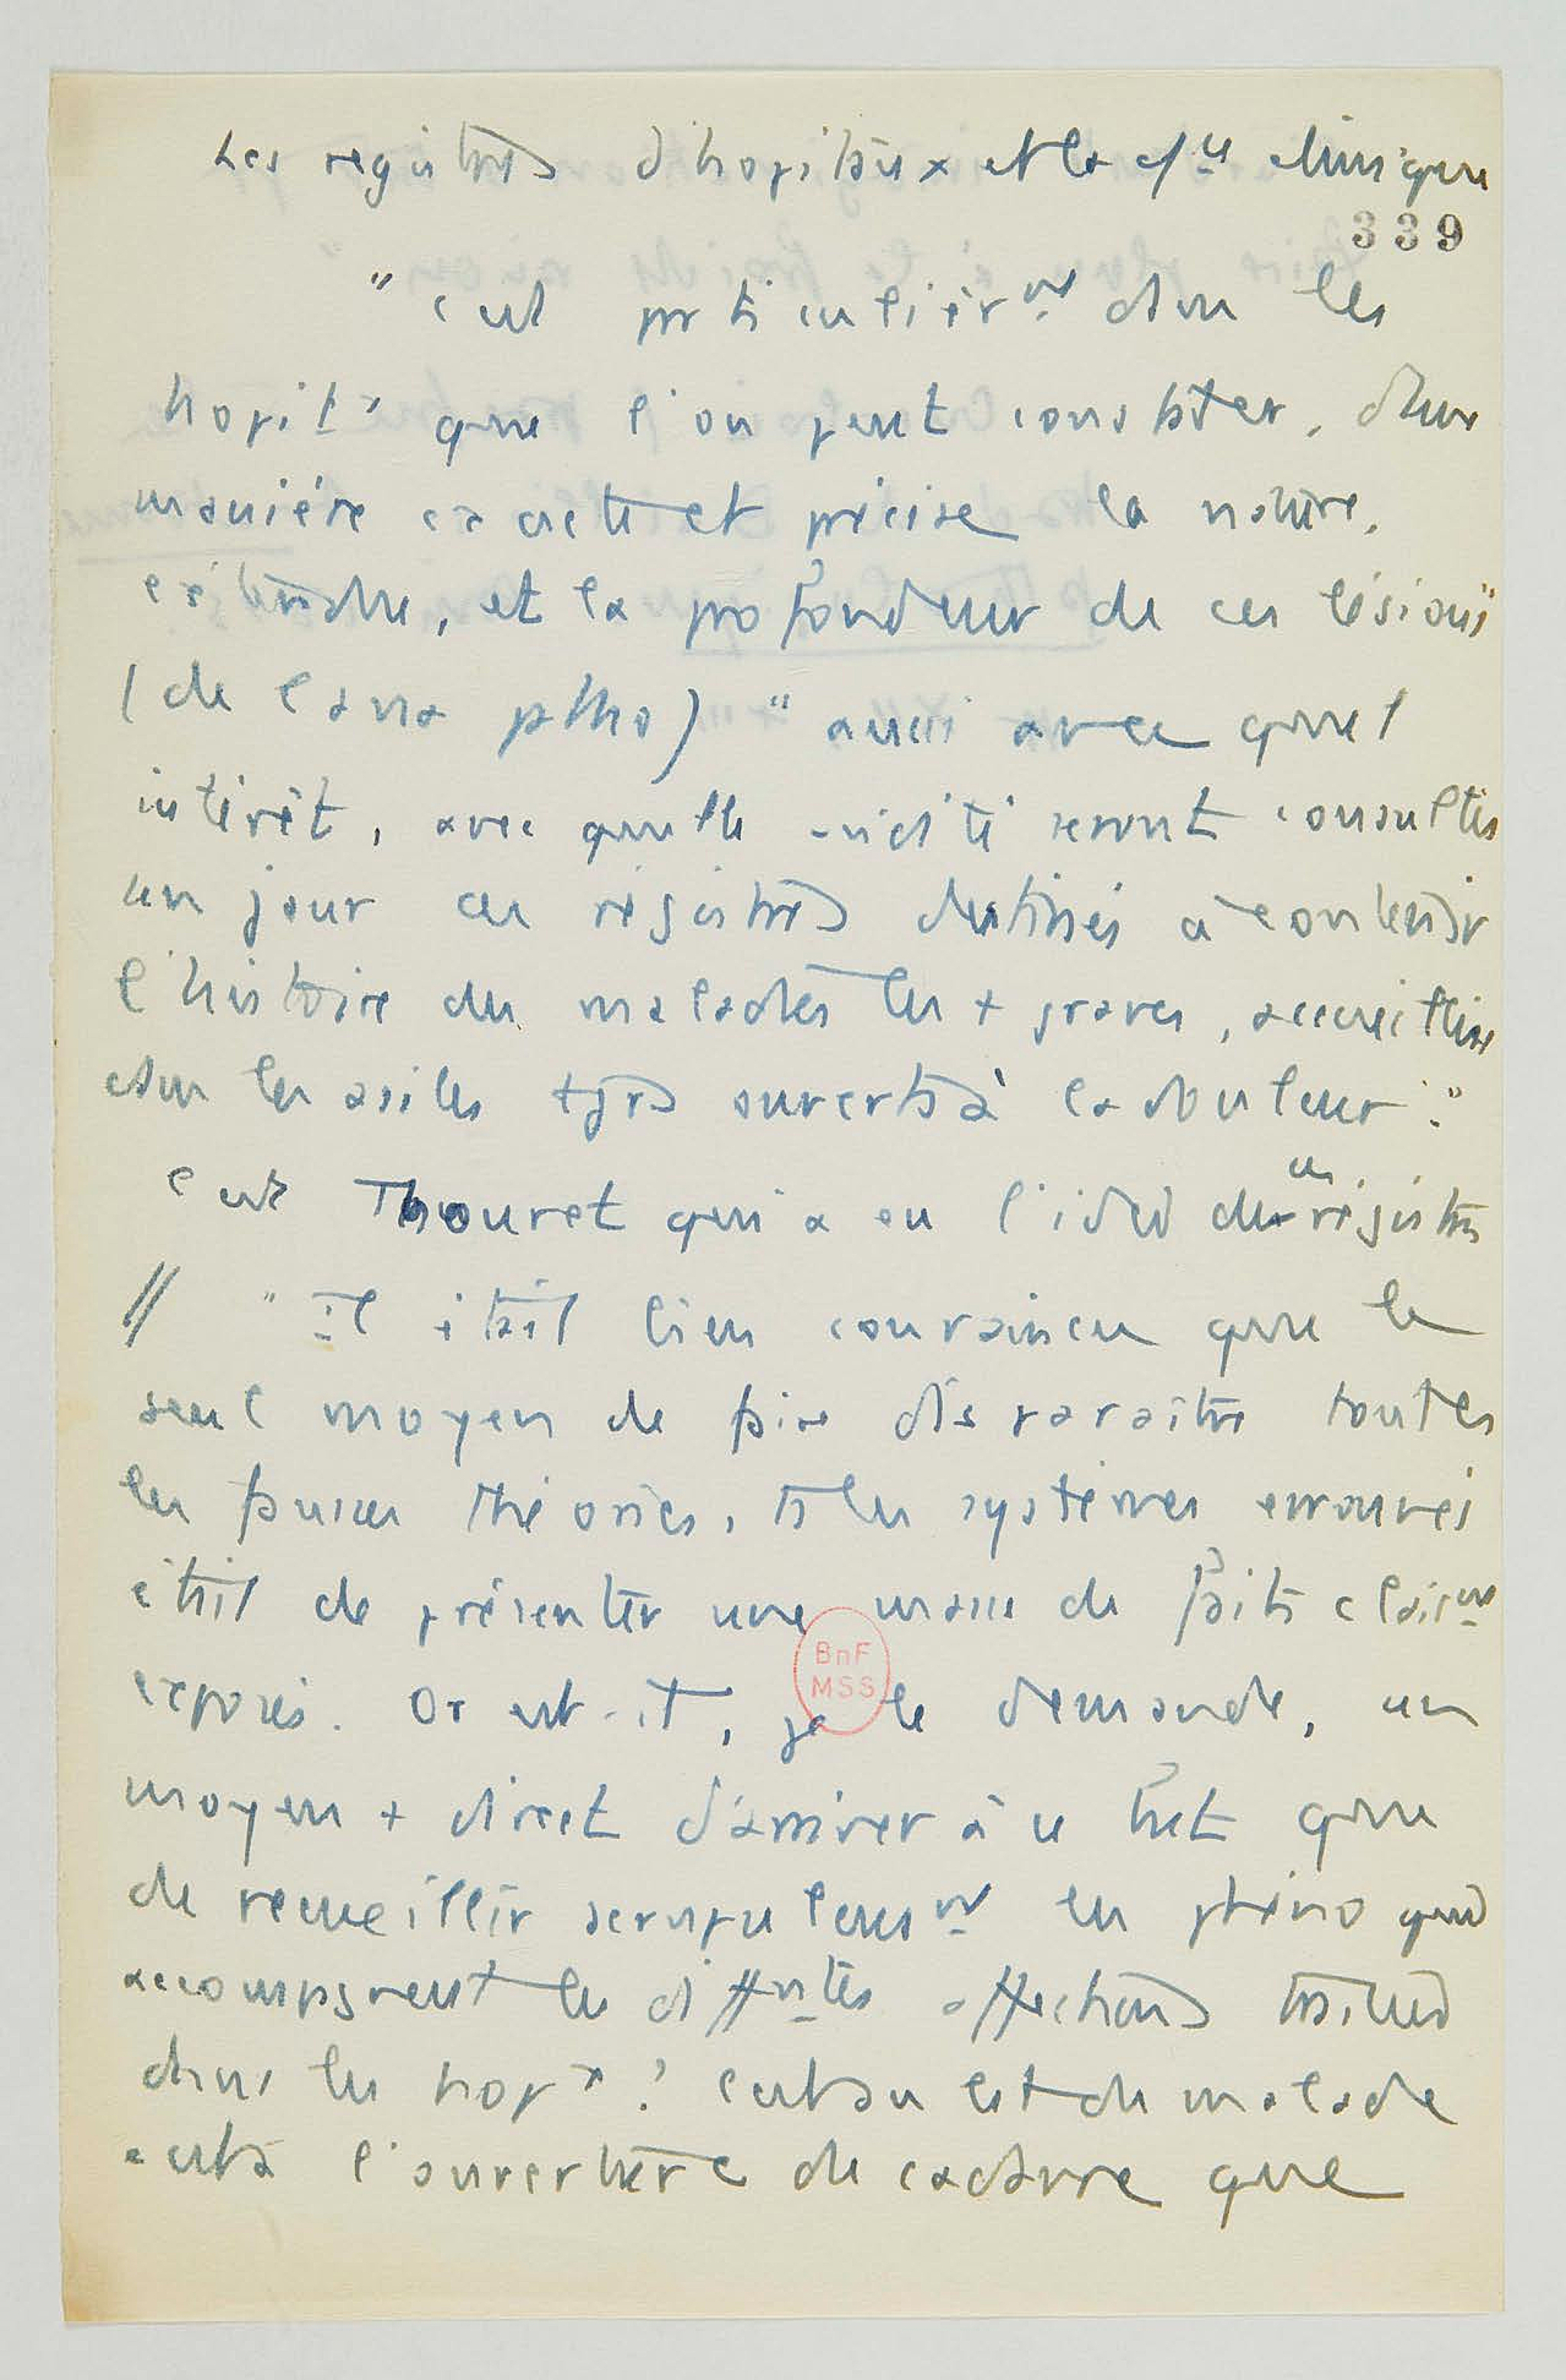 Les registres d'hopitaux et la clinique
339
" c'est particulièrmt dans les
hopitx que l'on peut constater, d'une
manière exacte et précise la nature,
et la profondeur de ces lésions"
(de l'ana patho) " aussi avec quel
intérêt, avec quelle seront consultés
un jour ces régistres destinés à contenir
l'histoire des malades les + graves, accueillis
dans les asiles tjrs ouverts à la douleur."
c'est Thouret qui a eu l'idée de ces régistres
// " il était bien convaincu que le
seul moyen de faire disparaitre toutes
les fausses théories, ts les systèmes erronnés
était de présenter une masse de faits clairmt
exposés. Or est-il, je le demande, un
moyen + direct d'arriver à ce but que
de recueillir scrupuleusmt les phéno qui
accompagnent les diffntes affections traitées
dans les hopx? C'est au lit du malade
c'est à l'ouverture du cadavre que
BnF
MSS